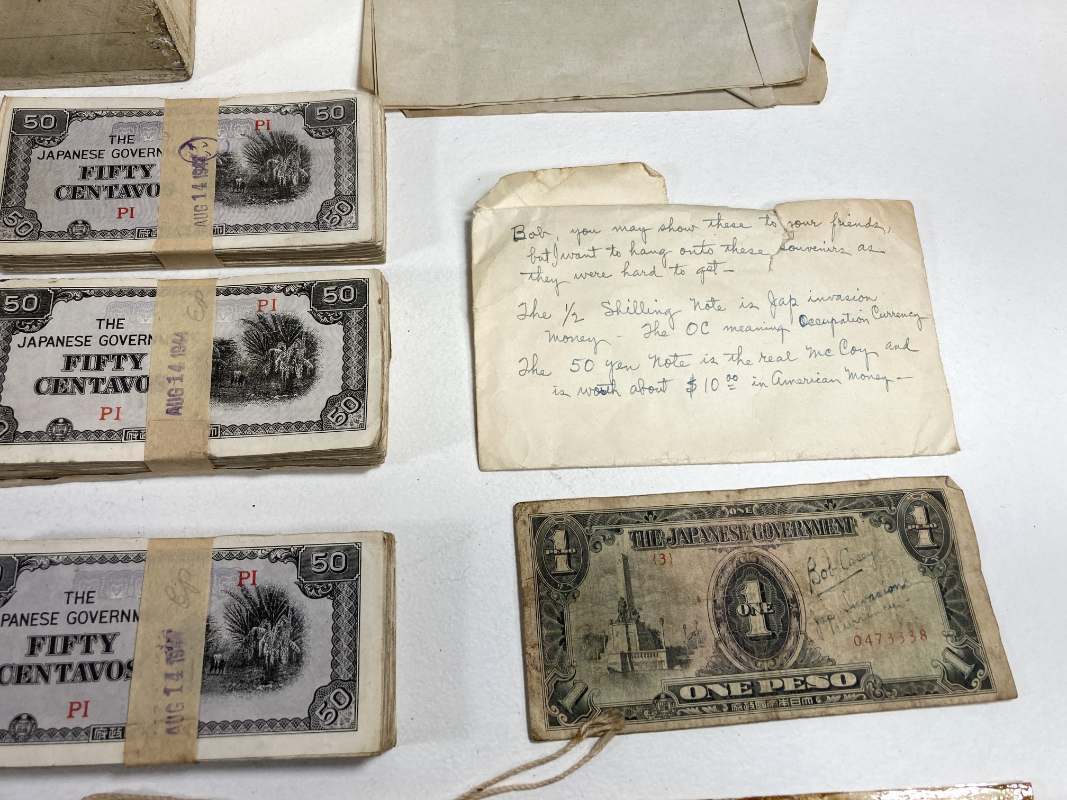 50
PI
THE
JAPANESE GOVERN
FIFTY
CENTAVO
PI
50
50
AUG 14 194
50
PI
THE
JAPANESE GOVERN
FIFTY
CENTAVO
PI
50
AUG 14 1944
50
PI
THE
PANESE GOVERNM
FIFTY
CENTAVOS
PI
50
AUG 14 19
Bob, you may show these to your friends,
but I want to hang onto these souvenirs as
they were hard to get —
The 1/2 Shilling Note is Jap invasion
Money - The OC meaning Occupation Currency
The 50 yen Note is the real McCoy and
is worth about $10.00 in American Money —
ONE
THE JAPANESE GOVERNMENT
1
PESO
1
PESO
{3}
1
ONE
Bob
Jap Invasion
0473338
1
1
ONE PESO